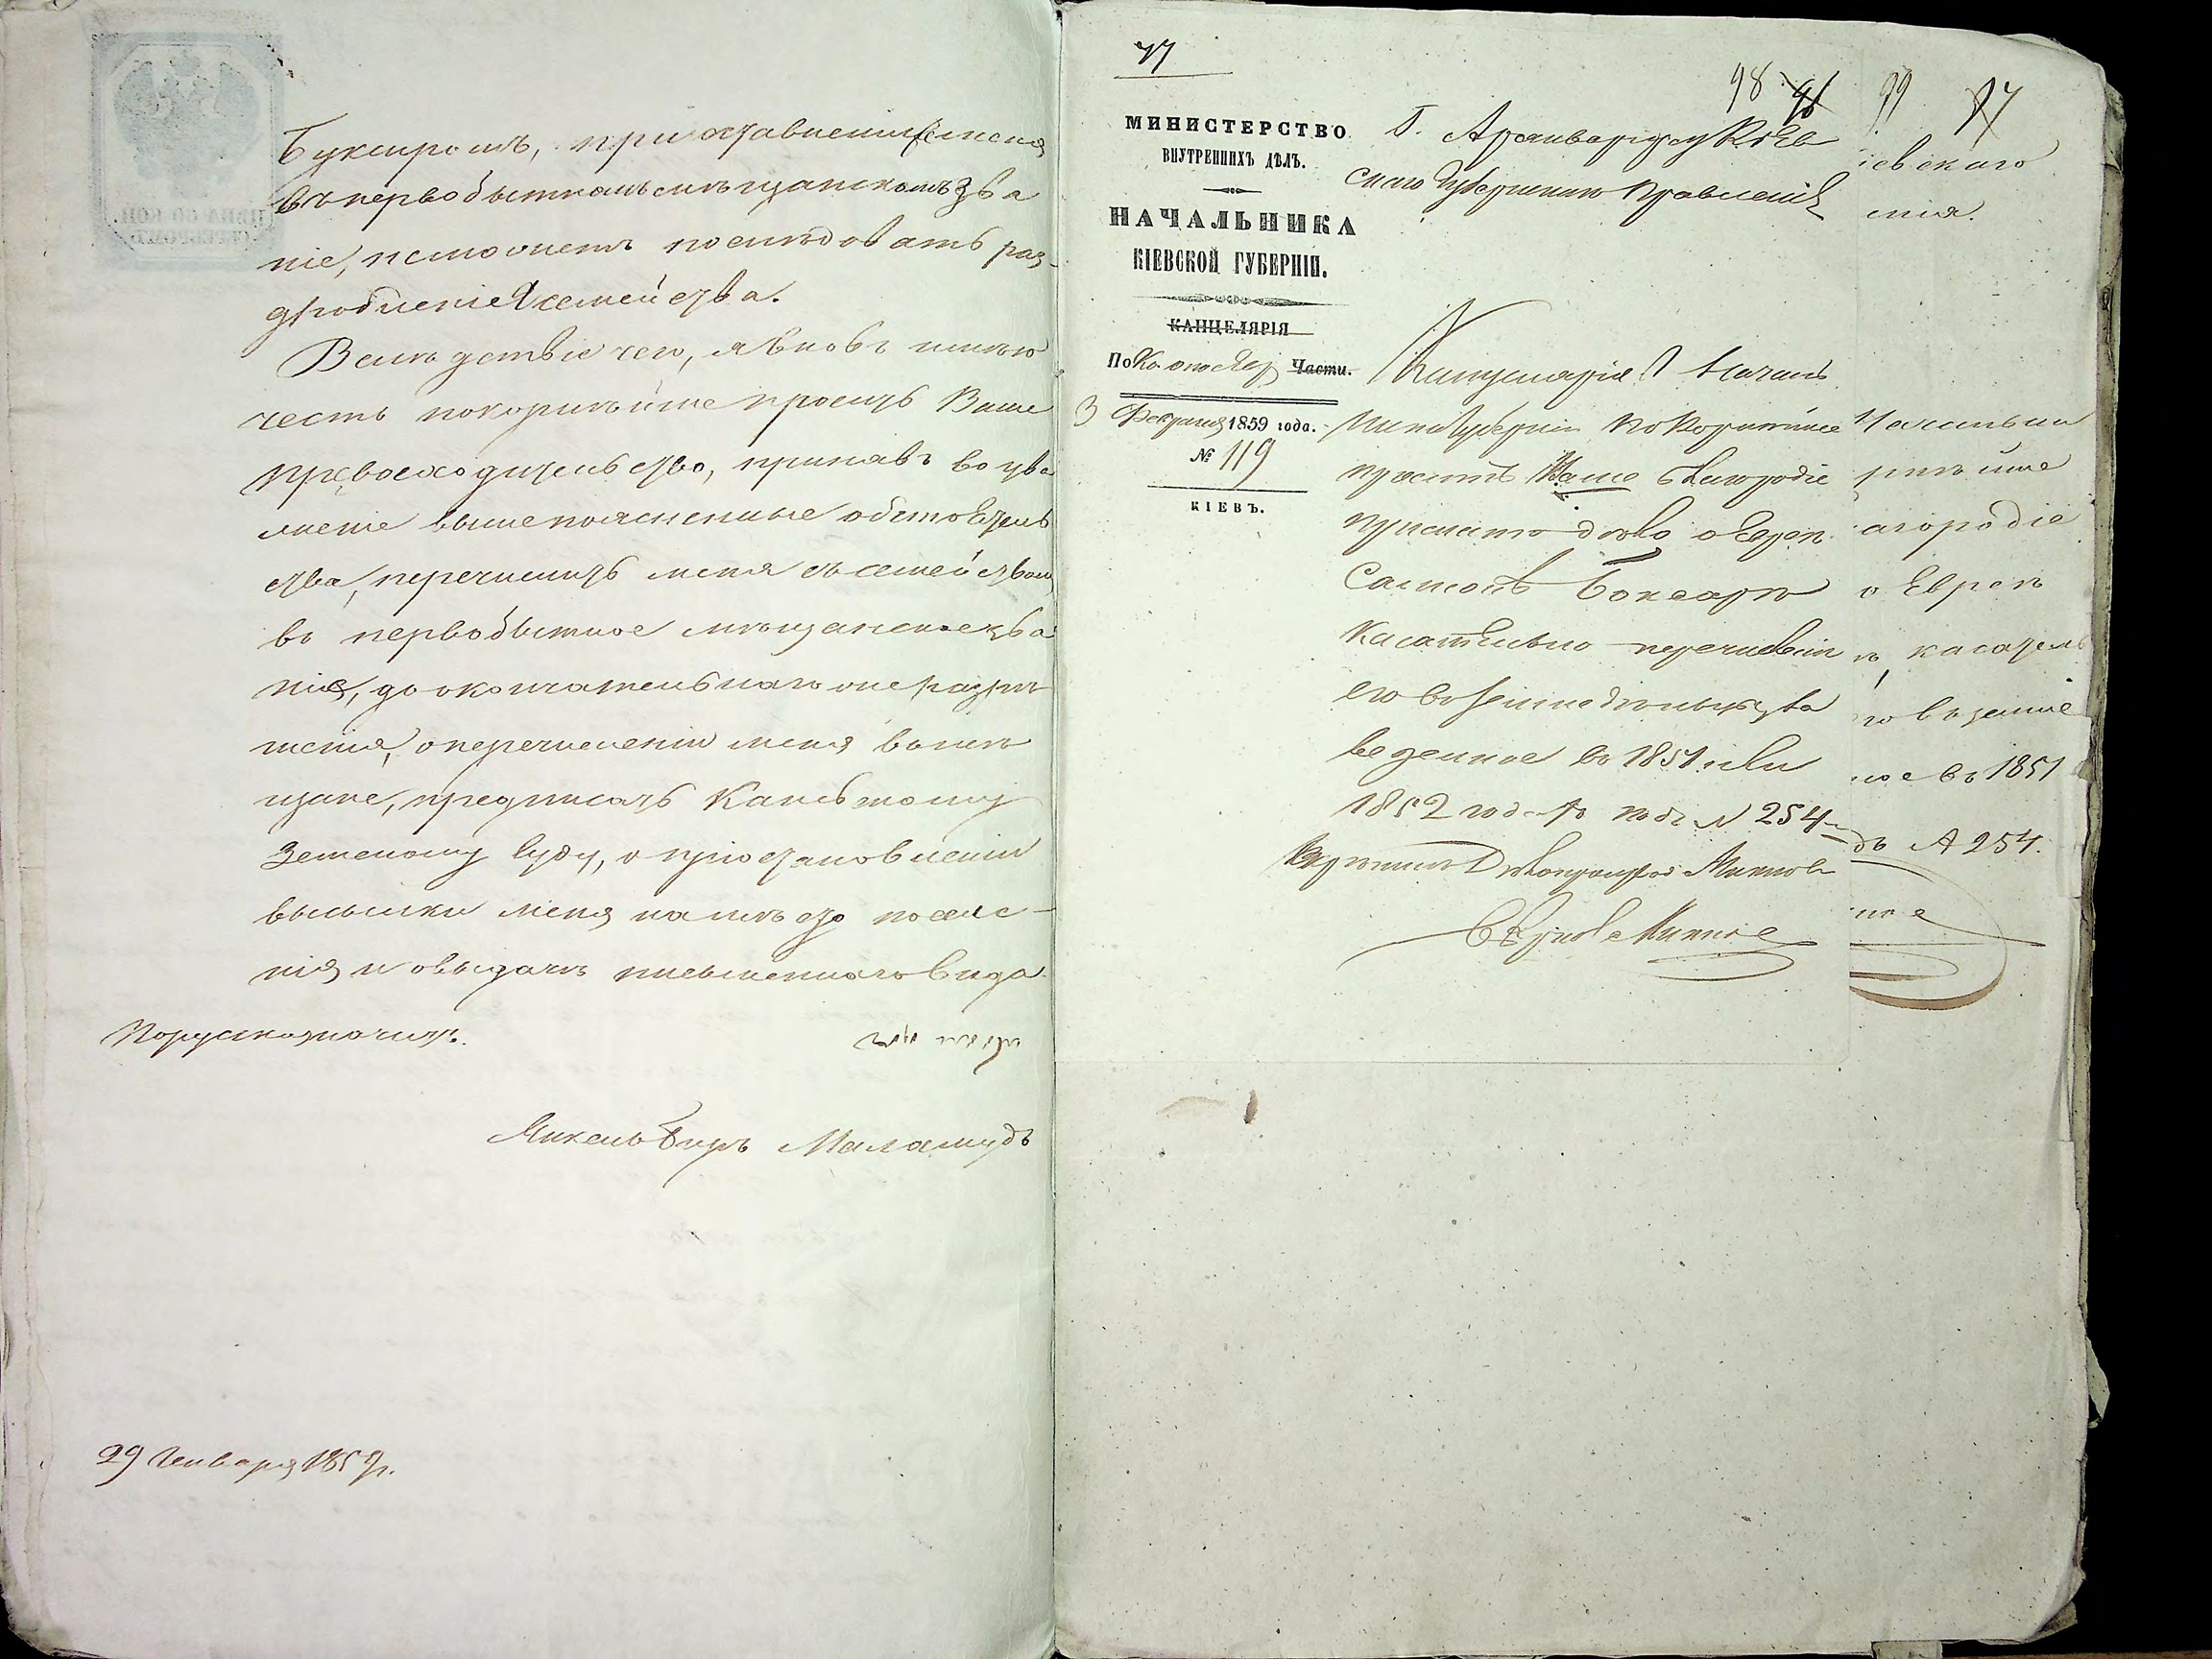 Буксиромъ, при оставленіи меня
въ первобытномъ мѣщанскомъ зва
ніе, не можетъ послѣдовать раз-
дробленіе семейства.
Вслѣдствіе чего, я вновь имѣю
честь покорнѣйше просить Ваше
Превосходительство, принявъ во ува
женіе вышепоясненные обстоятель
ства, перечислить меня съ семействомъ
въ первобытное мѣщанское зва
ніе, до окончательнаго же разрѣ
шенія, о перечисленіи меня въ мѣ
щане, предписать Каневскому
Земскому Суду, о пріостановленіи
высылки меня на мѣсто поселе-
нія и о выдачѣ письменнаго вида.
По руски значитъ.
Микель Беръ Маламудъ
29 Генваря 1859 г.
77
98 96
МИНИСТЕРСТВО
ВНУТРЕННИХЪ ДѢЛЪ.
НАЧАЛЬНИКА
КІЕВСКОЙ ГУБЕРНІИ.
КАНЦЕЛЯРІЯ
По Части.
3 Февраля 1859 года.
№ 119
КІЕВЪ.
Г. Архиваріусу Кіев
скаго Губернскаго Правленія
Канцелярія Началь
ника Губерніи покорнѣйше
проситъ Ваше благородіе
прислать дѣло о Евреѣ
Боксарѣ
касательно перечисленія
его въ земледѣльцы за
веденное въ 1851 или
1852 годахъ подъ № 254
99 97
іевскаго
енія.
Начальни
рнѣйше
агородіе
о Евреѣ
ѣ, касатель
го въ земле
ное въ 1851
дъ № 254.